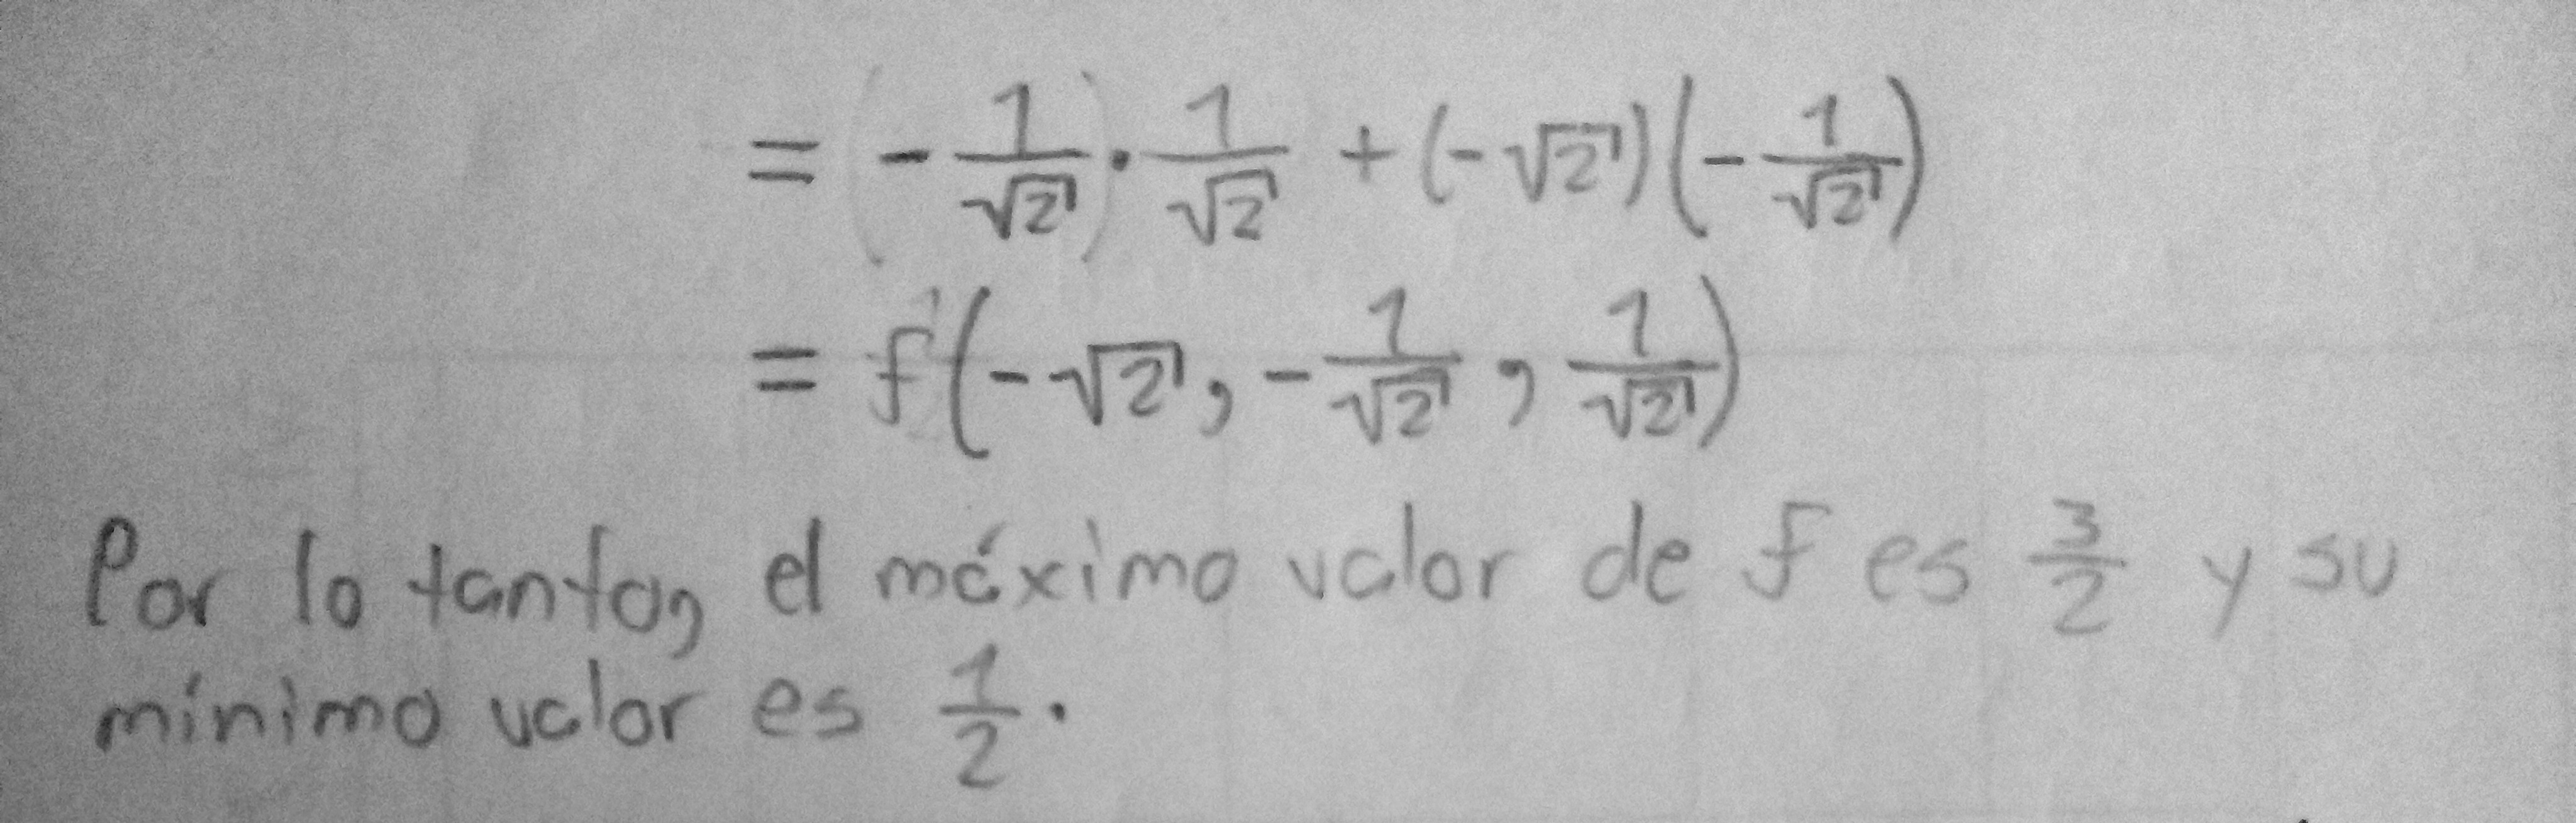 = (-1/√2) · 1/√2 + (-√2)(-1/√2)
= f(-√2, -1/√2, 1/√2)
Por lo tanto, el máximo valor de f es 3/2 y su
mínimo valor es 1/2.